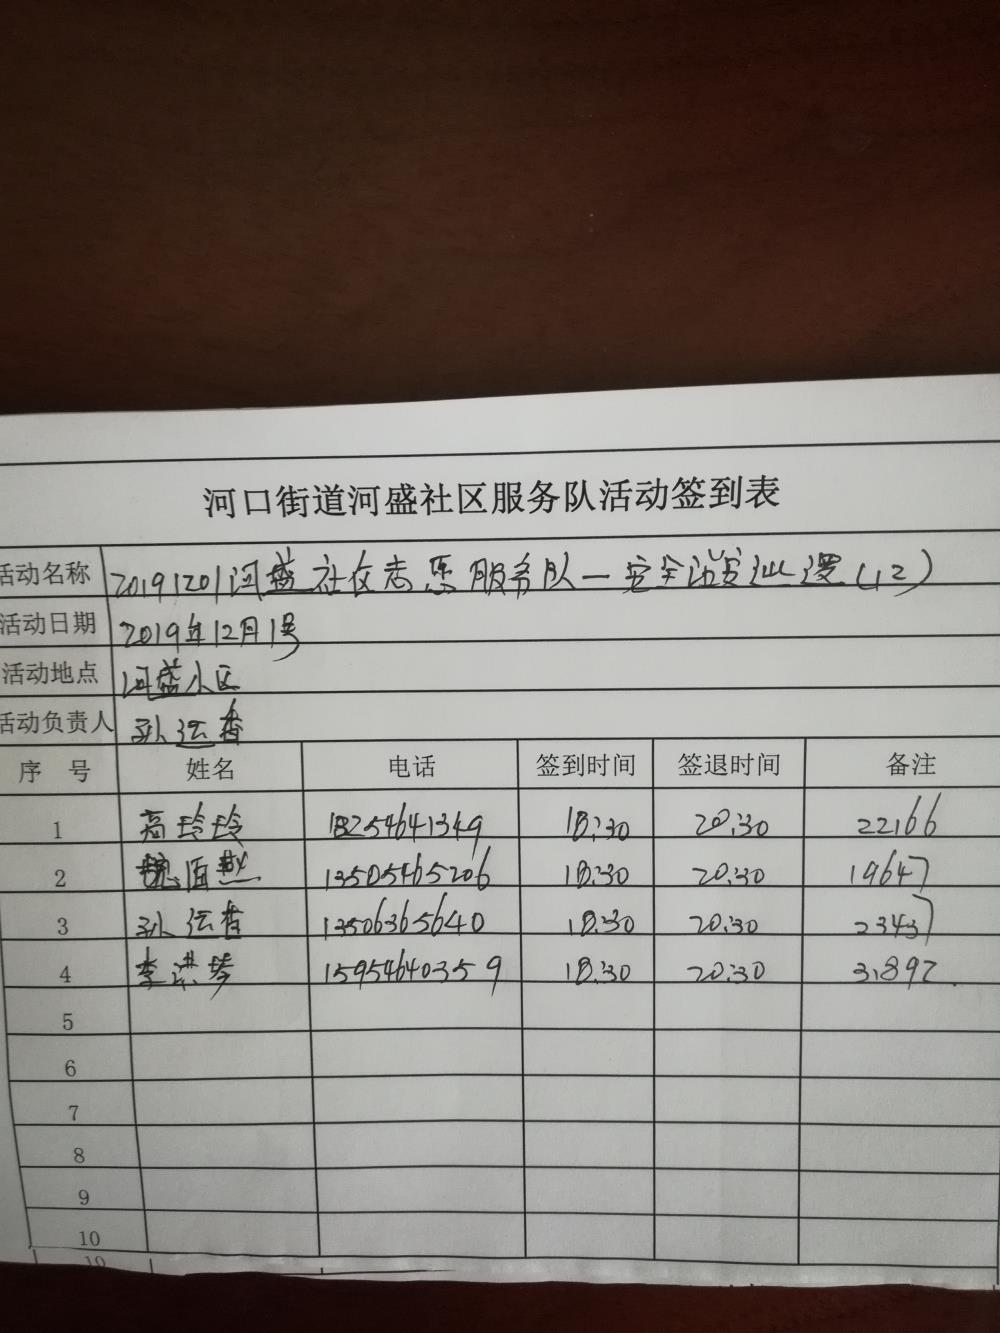 河口街道河盛社区服务队活动签到表
活动名称 20191201河盛社区志愿服务队—安全治安巡逻(12)
活动日期 2019年12月1号
活动地点 河盛小区
活动负责人 孙运香
序 号 姓名 电话 签到时间 签退时间 备注
1 高玲玲 18254641349 18:30 20:30 22166
2 13505465206 18:30 20:30 19647
3 孙运香 13506365640 18:30 20:30 23437
4 李洪琴 15954640359 18:30 20:30 31892
5
6
7
8
9
10